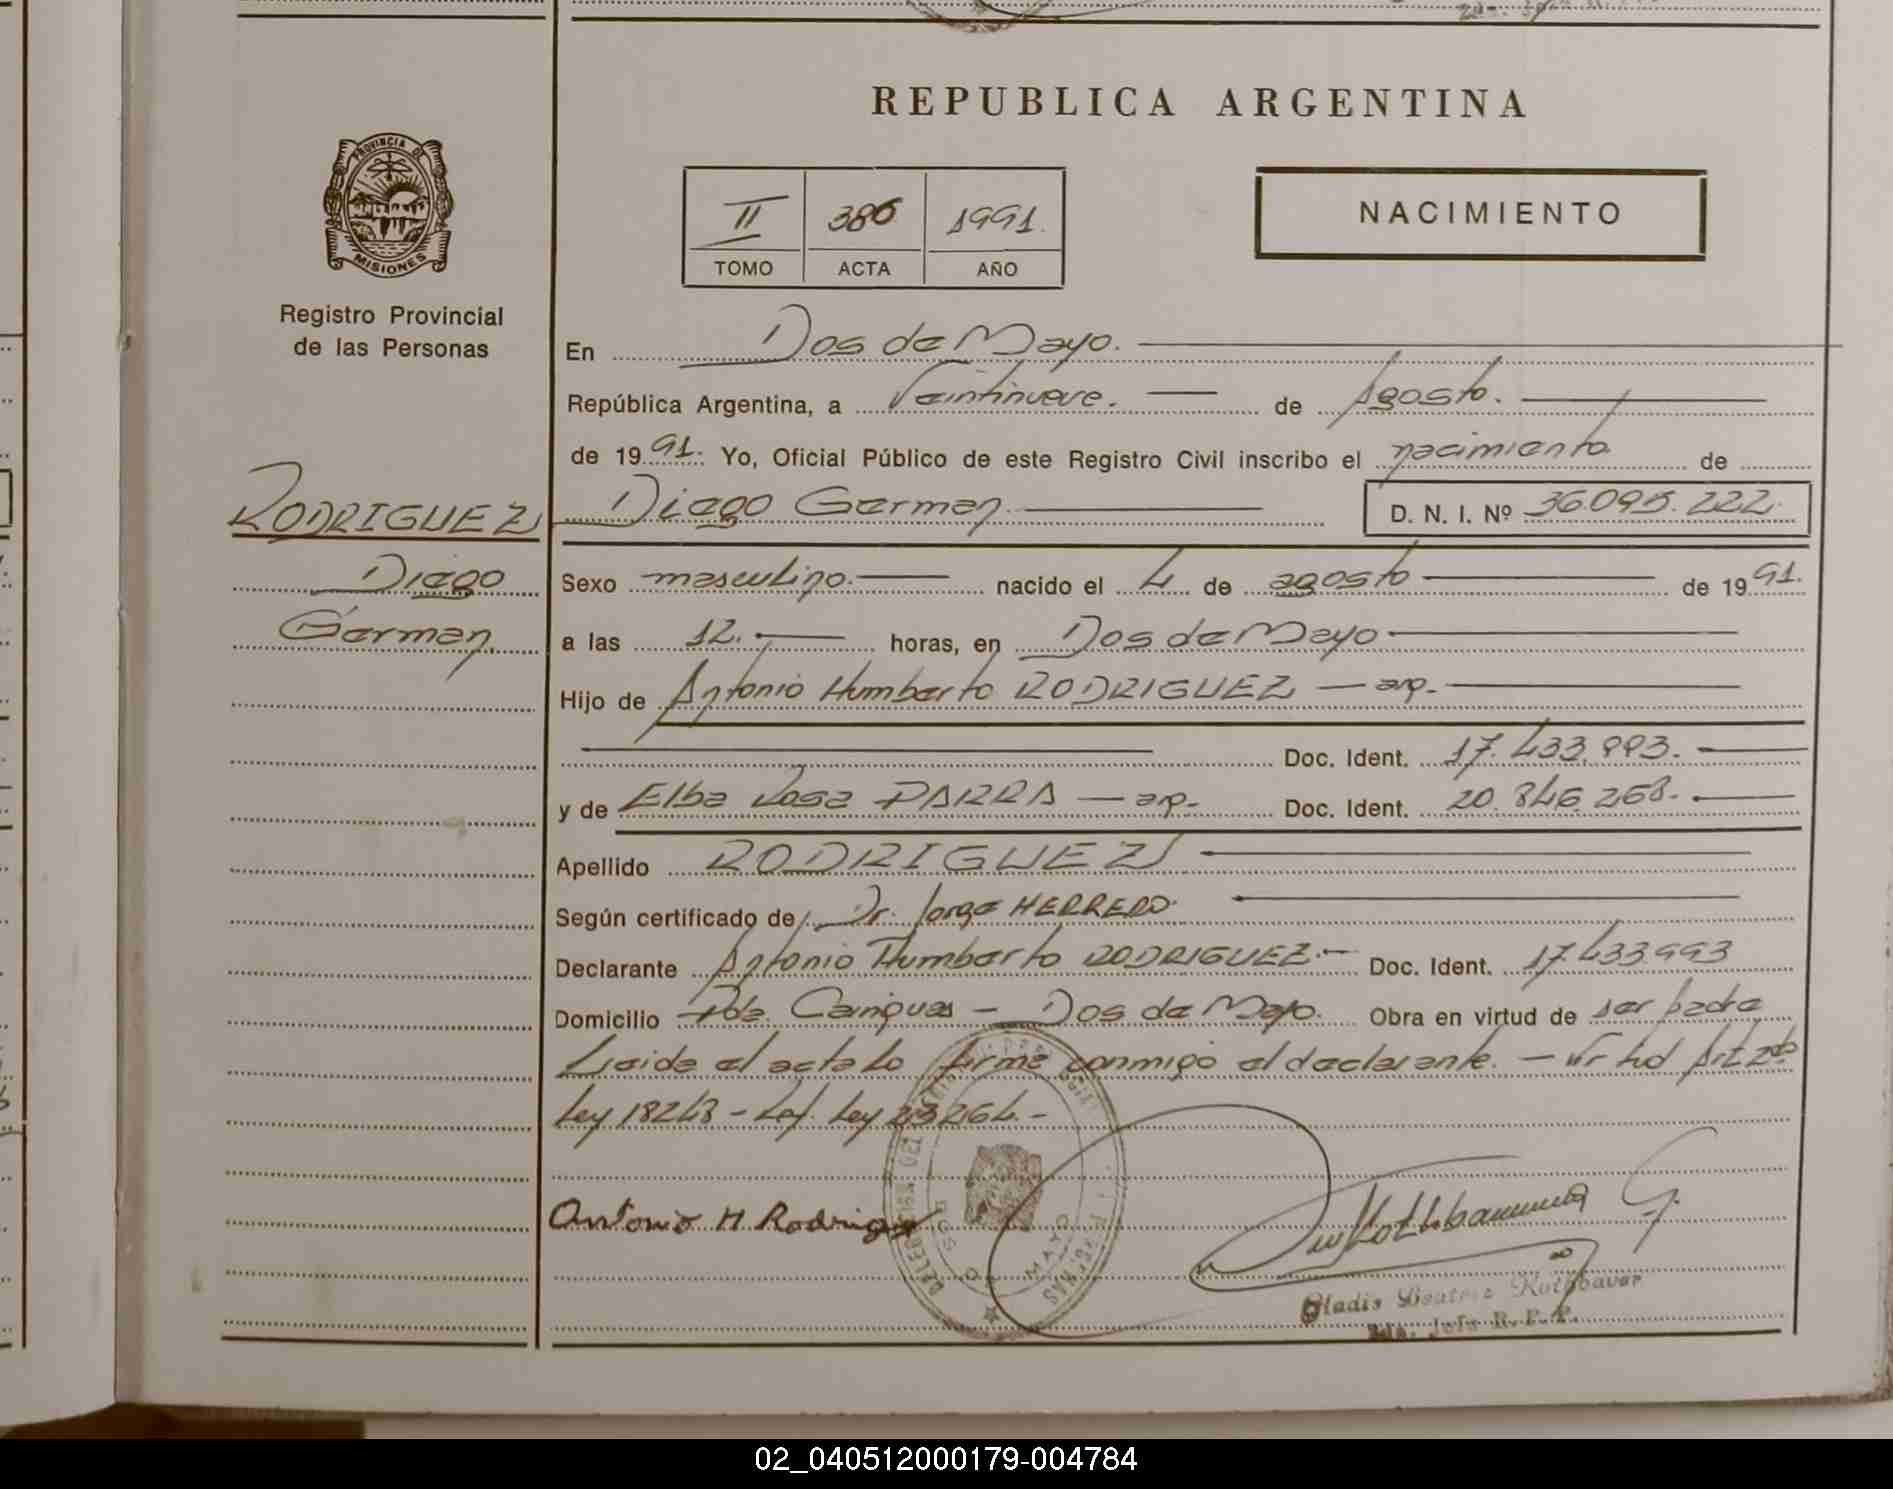 REPUBLICA ARGENTINA
PROVINCIA DE
MISIONES
Registro Provincial
de las Personas
II 386 1991.
TOMO ACTA AÑO
NACIMIENTO
En Dos de Mayo.
República Argentina, a Veintinueve. de Agosto.
de 1991. Yo, Oficial Público de este Registro Civil inscribo el nacimiento de
RODRIGUEZ
Diego
German.
Diego German. D. N. I. Nº 36.095.222.
Sexo masculino. nacido el 4 de agosto de 1991.
a las 12. horas, en Dos de Mayo
Hijo de Antonio Humberto RODRIGUEZ — arg.
Doc. Ident. 17.433.993.
y de Elba Rosa PARRA — arg. Doc. Ident. 20.846.268.
Apellido RODRIGUEZ
Según certificado de Dr. Jorge HERRERO.
Declarante Antonio Humberto RODRIGUEZ. Doc. Ident. 17.433.993
Domicilio Pda. Cainguas — Dos de Mayo. Obra en virtud de ser padre
Leida el acta la firma conmigo el declarante. — Art. 2do
Ley 18248 - Ley 23264. -
Antonio H Rodriguez
DOS DE MAYO
Gladis Beatriz Rothbauer
R. P. P.
02_040512000179-004784